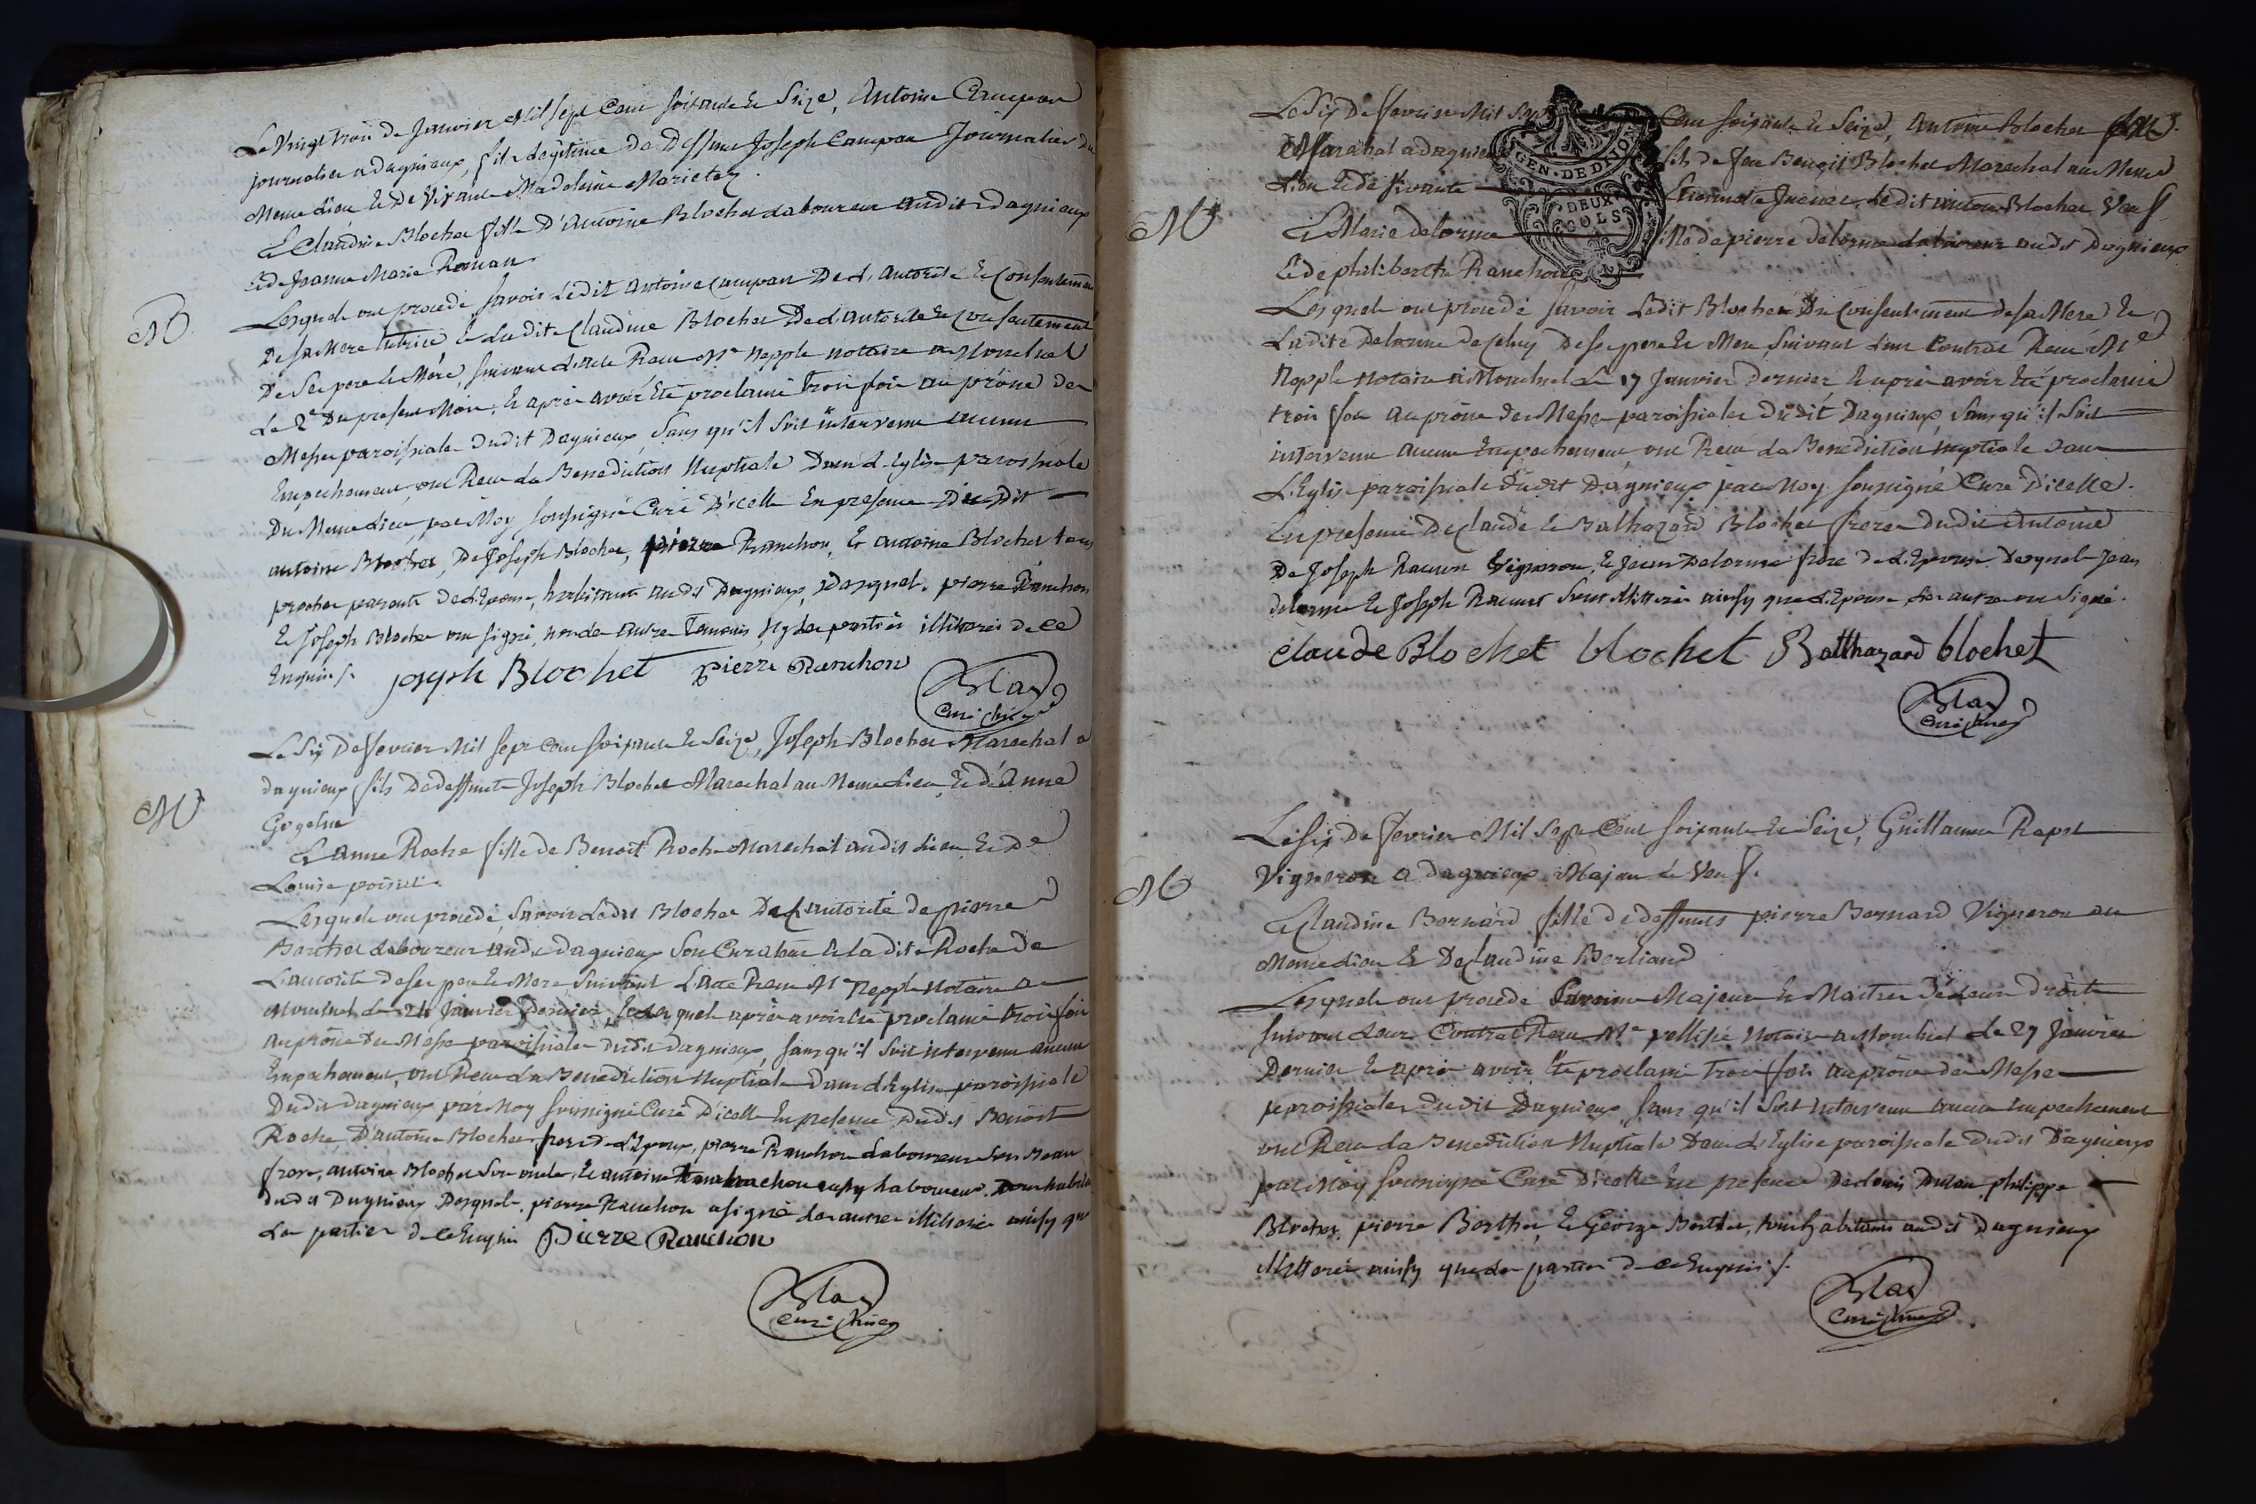 Le vingt trois de Janvier Mil sept Cent soixante et Seize, Antoine Campan
journalier a Dagnieux, fils légitime de Deffunt Joseph Campan Journalier du
Meme Lieu et de vivante Madeleine
Et Claudine Blochet fille D'Antoine Blochet Laboureur audit Dagnieux
et de Jeanne Marie Roman
M
Lesquels ont procedé, savoir Ledit Antoine Campan De L'autorité et Consentement
De sa Mere tutrice et Ladite Claudine Blochet De L'autorité et consentement
De ses pere et Mere, suivant L'acte Recu Me Nepple notaire a Montluel
Le 2e Du present Mois, et après avoir été proclamé trois fois au prône des
Messes paroissiales dudit Dagnieux, sans qu'il soit intervenu aucun
Empechement, ont Recu La Benediction Nuptiale Dans L'Eglise paroissiale
Du Meme Lieu, par Moy soussigné Curé D'icelle En presence Du Dit
antoine Blochet, De Joseph Blochet, pierre Ranchon, et antoine Blochet tous
proches parents de L'Epouse, habitants audit Dagnieux, Desquels pierre Ranchon
et Joseph Blochet ont signé, non les autres Temoins, Ny les parties illiterés de ce
Enquis ./.
joseph Blochet pierre Ranchon
Blas
curé
Le Six De fevrier Mil sept cent soixante et Seize, Joseph Blochet Marechal a
dagnieux fils De deffunt Joseph Blochet Marechal au Meme Lieu, et d'Anne
M
Et anne Roche fille de Benoit Roche Marechal audit Lieu, et De
Louise
Lesquels ont procedé, savoir Ledit Blochet De L'autorité de pierre
Berthet Laboureur audit dagnieux Son Curateur et la dite Roche De
L'autorité de ses pere et Mere suivant L'acte Recu Me Nepple Notaire a
Montluel Le 24 Janvier Dernier, Lesquels après avoir été proclamé trois fois
au prône des Messes paroissiales dudit dagnieux, sans qu'il soit intervenu aucun
Empechement, ont Recu La Benediction Nuptiale Dans L'Eglise paroissiale
Dudit dagnieux par Moy soussigné Curé D'icelle En presence Dudit Benoit
Roche, D'antoine Blochet frere de L'Epoux, pierre Ranchon Laboureur Son Beau
frere, antoine Blochet Son oncle, et antoine Ranchon aussy Laboureur, tous habit
dudit Dagnieux Desquels pierre Ranchon a signé Les autres illiterés ainsy que
Les parties De ce Enquis Pierre Ranchon
Blas
curé
Le Six De fevrier Mil Sept Cent soixante et Seize, Antoine Blochet
Marechal a dagnieux fils de feu Benoit Blochet Marechal au Meme
Lieu et de vivante Le dit antoine Blochet veuf
GEN · DE DIJON
DEUX
SOLS
M
Et Marie delorme fille de pierre delorme Laboureur audit Dagnieux
et de philiberthe Ranchon
Lesquels ont procedé savoir Ledit Blochet Du Consentement de sa Mere et
Ladite Delorme de Celuy De ses pere et Mere, suivant Leur Contrat Recu Me
Nepple Notaire a Montluel Le 17 Janvier Dernier, et après avoir été proclamé
trois fois au prône des Messes paroissiales dudit Dagnieux, sans qu'il soit
intervenu aucun Empechement, ont Recu La Benediction Nuptiale Dans
L'Eglise paroissiale dudit Dagnieux par Moy soussigné Curé D'icelle.
En presence De Claude et Balthazard Blochet freres dudit Antoine
De Joseph Vigneron, et Jean Delorme frere de L'Epouse. Desquels Jean
delorme et Joseph sont illiterés ainsy que L'Epouse Les autres ont signé.
claude Blochet blochet Balthazard blochet
Blas
curé
Le Six De fevrier Mil Sept Cent soixante et Seize, Guillaume
Vigneron a dagnieux Majeur et veuf.
M
Et Claudine Bernard fille de deffunts pierre Bernard Vigneron au
Meme Lieu et De Claudine
Lesquels ont procedé Comme Majeurs et Maitres De Leurs Droits
suivant Leur Contrat Recu Me Notaire a Montluel Le 27 Janvier
Dernier et après avoir été proclamé trois fois au prône des Messes
paroissiales dudit Dagnieux, sans qu'il soit intervenu aucun Empechement
ont Recu La Benediction Nuptiale Dans L'Eglise paroissiale dudit Dagnieux
par Moy soussigné Curé D'icelle En presence De Louis philippe
Blochet, pierre Berthet, et George Berthet, tous habitants audit Dagnieux
illiterés ainsy que Les parties De ce Enquis ./.
Blas
curé